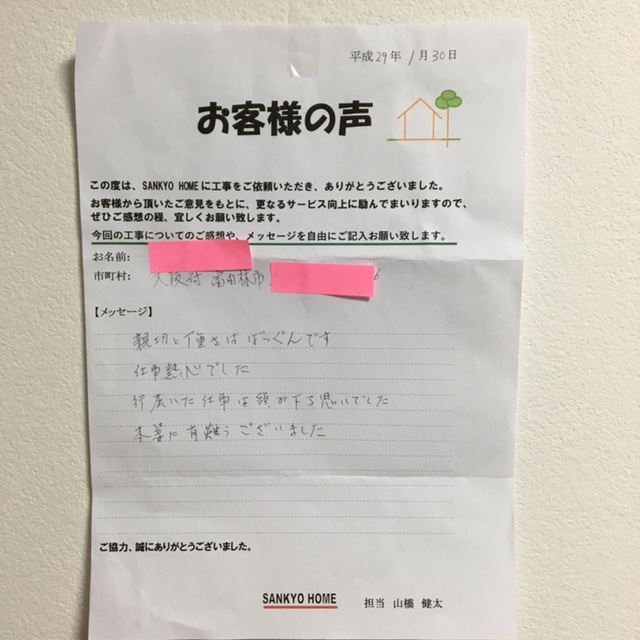 平成29年 1月30日
お客様の声
この度は、SANKYO HOMEに工事をご依頼いただき、ありがとうございました。
お客様から頂いたご意見をもとに、更なるサービス向上に励んでまいりますので、
ぜひご感想の程、宜しくお願い致します。
今回の工事についてのご感想や、メッセージを自由にご記入お願い致します。
お名前:
市町村: 大阪府 富田林市
【メッセージ】
親切と丁重さはばつぐんです
仕事熱心でした
行届いた仕事は頭が下る思いでした
本当に有難うございました
ご協力、誠にありがとうございました。
SANKYO HOME 担当 山橋 健太